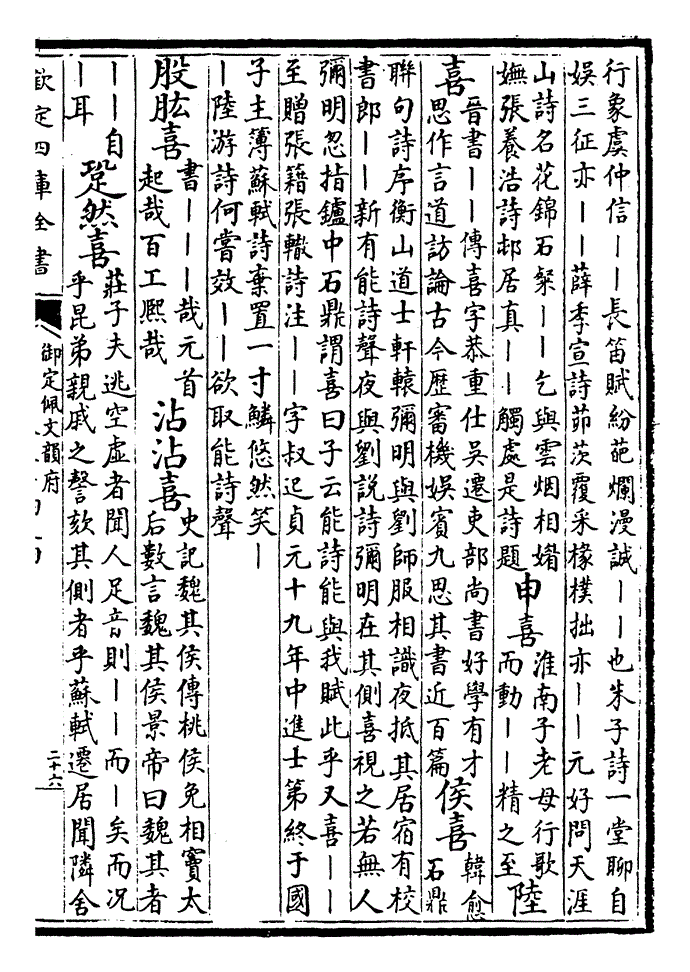 行象虞仲信｜｜長笛賦紛葩爛漫誠｜｜也朱子詩一堂聊自
娛三征亦｜｜薛季宣詩茆茨覆采椽樸拙亦｜｜元好問天涯
山詩名花錦石粲｜｜乞與雲烟相媚
嫵張養浩詩邨居真｜｜觸處是詩題
申喜
淮南子老母行歌
而動｜｜精之至
陸
喜
晉書｜｜傳喜字恭重仕吳遷吏部尚書好學有才
思作言道訪論古今歷審機娛賓九思其書近百篇
侯喜
韓愈
石鼎
聯句詩序衡山道士軒轅彌明與劉師服相識夜抵其居宿有校
書郎｜｜新有能詩聲夜與劉說詩彌明在其側喜視之若無人
彌明忽指鑪中石鼎謂喜曰子云能詩能與我賦此乎又喜｜｜
至贈張籍張轍詩注｜｜字叔貞元十九年中進士第終于國
子主簿蘇軾詩棄置一寸鱗悠然笑｜
｜陸游詩何嘗效｜｜欲取能詩聲
股肱喜
書｜｜｜哉元首
起哉百工熙哉
沾沾喜
史記魏其侯傳桃侯免相竇太
后數言魏其侯景帝曰魏其者
｜｜自
｜耳
跫然喜
莊子夫逃空虛者聞人足音則｜｜而｜矣而况
乎昆弟親戚之謦欬其側者乎蘇軾遷居聞隣舍
欽定四庫全書
御定佩文韻府
二十六